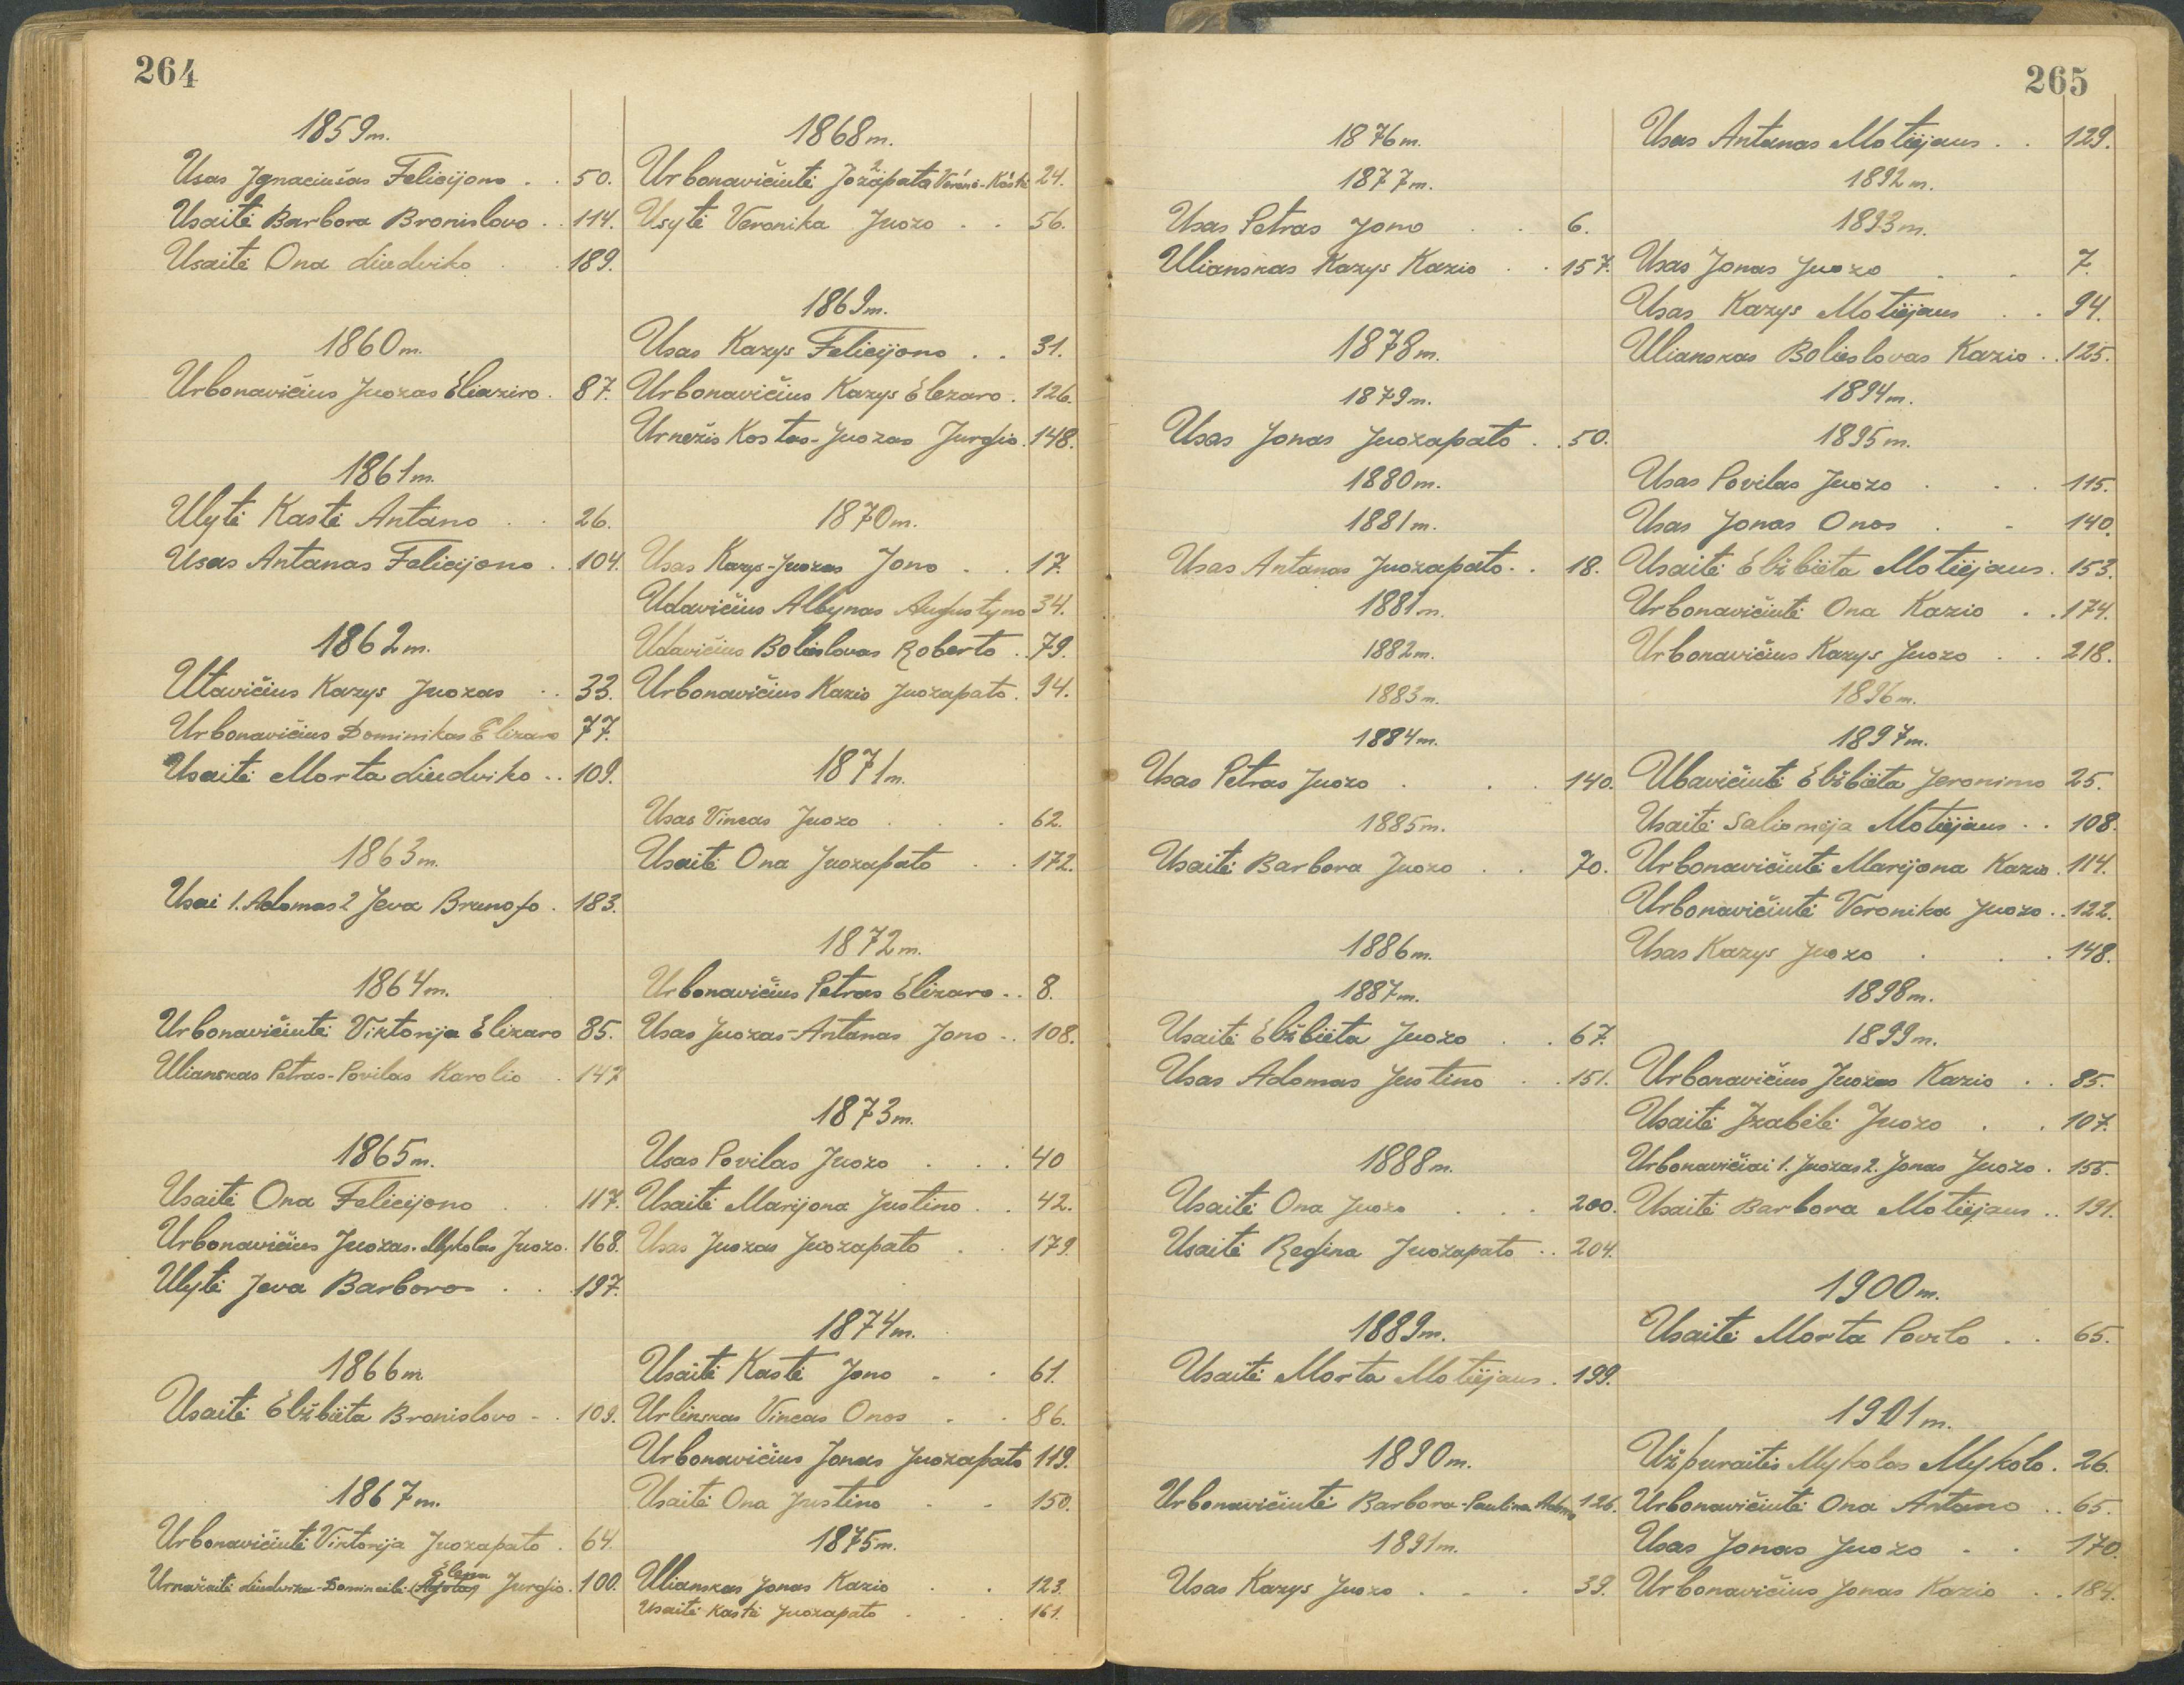 264
1859m.
Usas Ignaciušas Felicijono . . 50.
Usaitė Barbora Bronislovo . . 114.
Usaitė Ona Liudviko . . 189.
1860m.
Urbonavičius Juozas Eliaziro . 87.
1861m.
Ulytė Kastė Antano . . 26.
Usas Antanas Felicijono . . 104.
1862m.
Utavičius Kazys Juozas . . 33.
Urbonavičius Dominikas Elizaro 77.
Usaitė Morta Liudviko . . 109.
1863m.
Usai 1. Adomas 2 Jeva Brunofo . 183.
1864m.
Urbonavičiutė Viktorija Elizaro 85.
Ulianskas Petras-Povilas Karolio . 147
1865m.
Usaitė Ona Felicijono . . 117.
Urbonavičius Juozas-Mykolas Juozo. 168.
Ulytė Jeva Barboros . . 197.
1866m
Usaitė Elžbieta Bronislovo . . 109.
1867m.
Urbonavičiutė Viktorija Juozapato . 64.
Elena
Urnežaitė Liudvika-Dominikė Jurgio. 100.
1868m.
2
Urbonavičiutė Jozapata Verono-Kastė 24.
Usytė Veronika Juozo . . 56.
1869m.
Usas Kazys Felicijono . . 31.
Urbonavičius Kazys Elezaro . 126.
Urnežis Kostas-Juozas Jurgio. 148.
1870m.
Usas Kazys-Juozas Jono . . 17.
Udavičius Albynas Augustyno 34.
Udavičius Bolieslovas Roberto . 79.
Urbonavičius Kazio Juozapato . 94.
1871m.
Usas Vincas Juozo . . . 62.
Usaitė Ona Juozapato . . 172.
1872m.
Urbonavičius Petras Elizaro . . 8.
Usas Juozas-Antanas Jono . . 108.
1873m.
Usas Povilas Juozo . . . 40
Usaitė Marijona Justino . . 42.
Usas Juozas Juozapato . . 179.
1874m.
Usaitė Kastė Jono . . 61.
Urlinskas Vincas Onos . . 86.
Urbonavičius Jonas Juozapato 119.
Usaitė Ona Justino . . 150.
1875m.
Ulianskas Jonas Kazio . . 123.
Usaitė Kastė Juozapato . . . 161.
265
1876m.
1877m.
Usas Petras Jono . . 6.
Ulianskas Kazys Kazio . . 157.
1878m.
1879m.
Usas Jonas Juozapato . . 50.
1880m.
1881m.
Usas Antanas Juozapato . . 18.
1881m.
1882m.
1883m.
1884m.
Usas Petras Juozo . . . 140.
1885m.
Usaitė Barbora Juozo . . 70.
1886m.
1887m.
Usaitė Elžbieta Juozo . . 67.
Usas Adomas Justino . . 151.
1888m.
Usaitė Ona Juozo . . . 200.
Usaitė Regina Juozapato . . 204.
1889m.
Usaitė Morta Motiejaus . 199.
1890m.
Urbonavičiutė Barbora-Paulina Adomo 126.
1891m.
Usas Kazys Juozo . . . 39.
Usas Antanas Motiejaus . . 129.
1892m.
1893m.
Usas Jonas Juozo . . 7.
Usas Kazys Motiejaus . . 94.
Ulianskas Bolieslovas Kazio . . 125.
1894m.
1895m.
Usas Povilas Juozo . . . 115.
Usas Jonas Onos . . 140.
Usaitė Elžbieta Motiejaus . 153.
Urbonavičiutė Ona Kazio . . 174.
Urbonavičius Kazys Juozo . . 218.
1896m.
1897m.
Ubavičiutė Elžbieta Jeronimo 25.
Usaitė Saliomėja Motiejaus . . 108.
Urbonavičiutė Marijona Kazio . 114.
Urbonavičiutė Veronika Juozo . . 122.
Usas Kazys Juozo . . . 148.
1898m.
1899m.
Urbonavičius Juozas Kazio . . 85.
Usaitė Izabelė Juozo . . 107.
Urbonavičiai 1. Juozas 2. Jonas Juozo . 155.
Usaitė Barbora Motiejaus . . 191.
1900m.
Usaitė Morta Povilo . . 65.
1901m.
Užpuraitis Mykolas Mykolo . 26.
Urbonavičiutė Ona Antano . . 65.
Usas Jonas Juozo . . 170.
Urbonavičius Jonas Kazio . . 184.